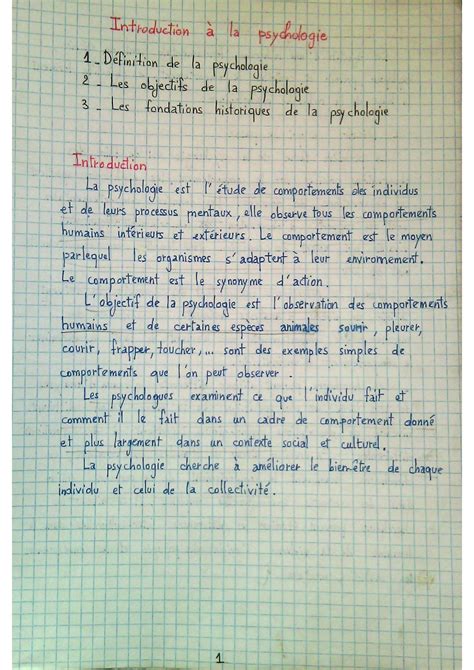 Introduction à la psychologie
1_ Définition de la psychologie
2_ Les objectifs de la psychologie
3_ Les fondations historiques de la psychologie
Introduction
La psychologie est l'étude de comportements des individus
et de leurs processus mentaux, elle observe tous les comportements
humains intérieurs et extérieurs. Le comportement est le moyen
parlequel les organismes s'adaptent à leur environnement.
Le comportement est le synonyme d'action.
L'objectif de la psychologie est l'observation des comportements
humains et de certaines espèces animales sourir, pleurer,
courir, frapper, toucher,... sont des exemples simples de
comportements que l'on peut observer.
Les psychologues examinent ce que l'individu fait et
comment il le fait dans un cadre de comportement donné
et plus largement dans un contexte social et culturel.
La psychologie cherche à améliorer le bien-être de chaque
individu et celui de la collectivité.
1